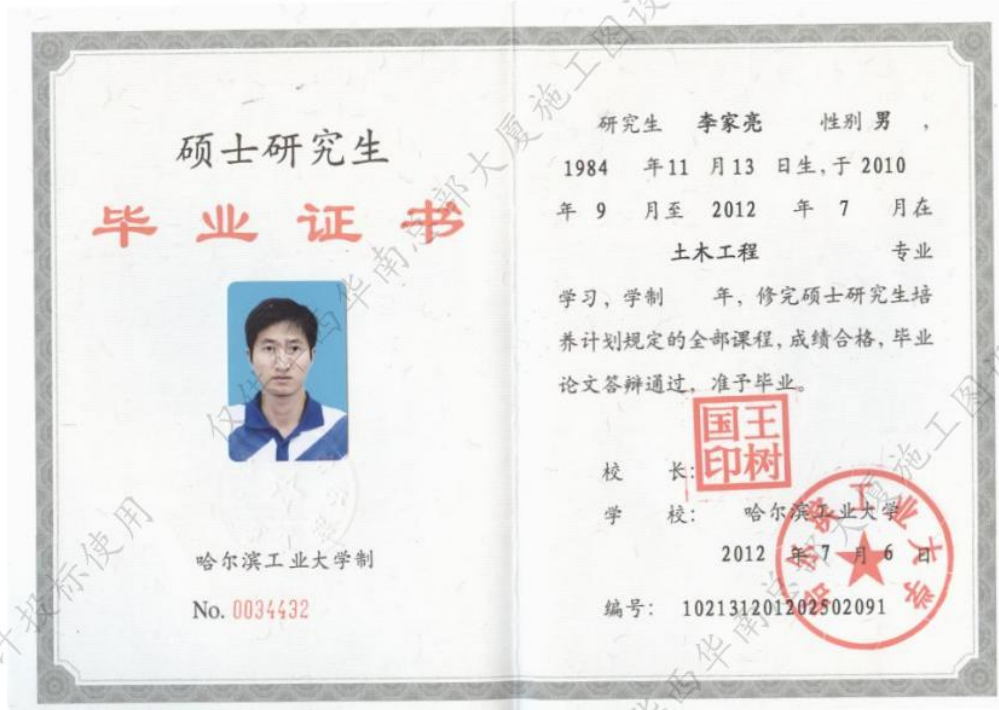 硕士研究生
毕业证书
哈尔滨工业大学制
No. 0034432
研究生 李家亮 性别 男 ,
1984 年 11 月 13 日生, 于 2010
年 9 月至 2012 年 7 月在
土木工程 专业
学习, 学制 年, 修完硕士研究生培
养计划规定的全部课程, 成绩合格, 毕业
论文答辩通过, 准予毕业。
国王
印树
校 长:
学 校: 哈尔滨工业大学
2012 年 7 月 6 日
编号: 102131201202502091
哈尔滨工业大学